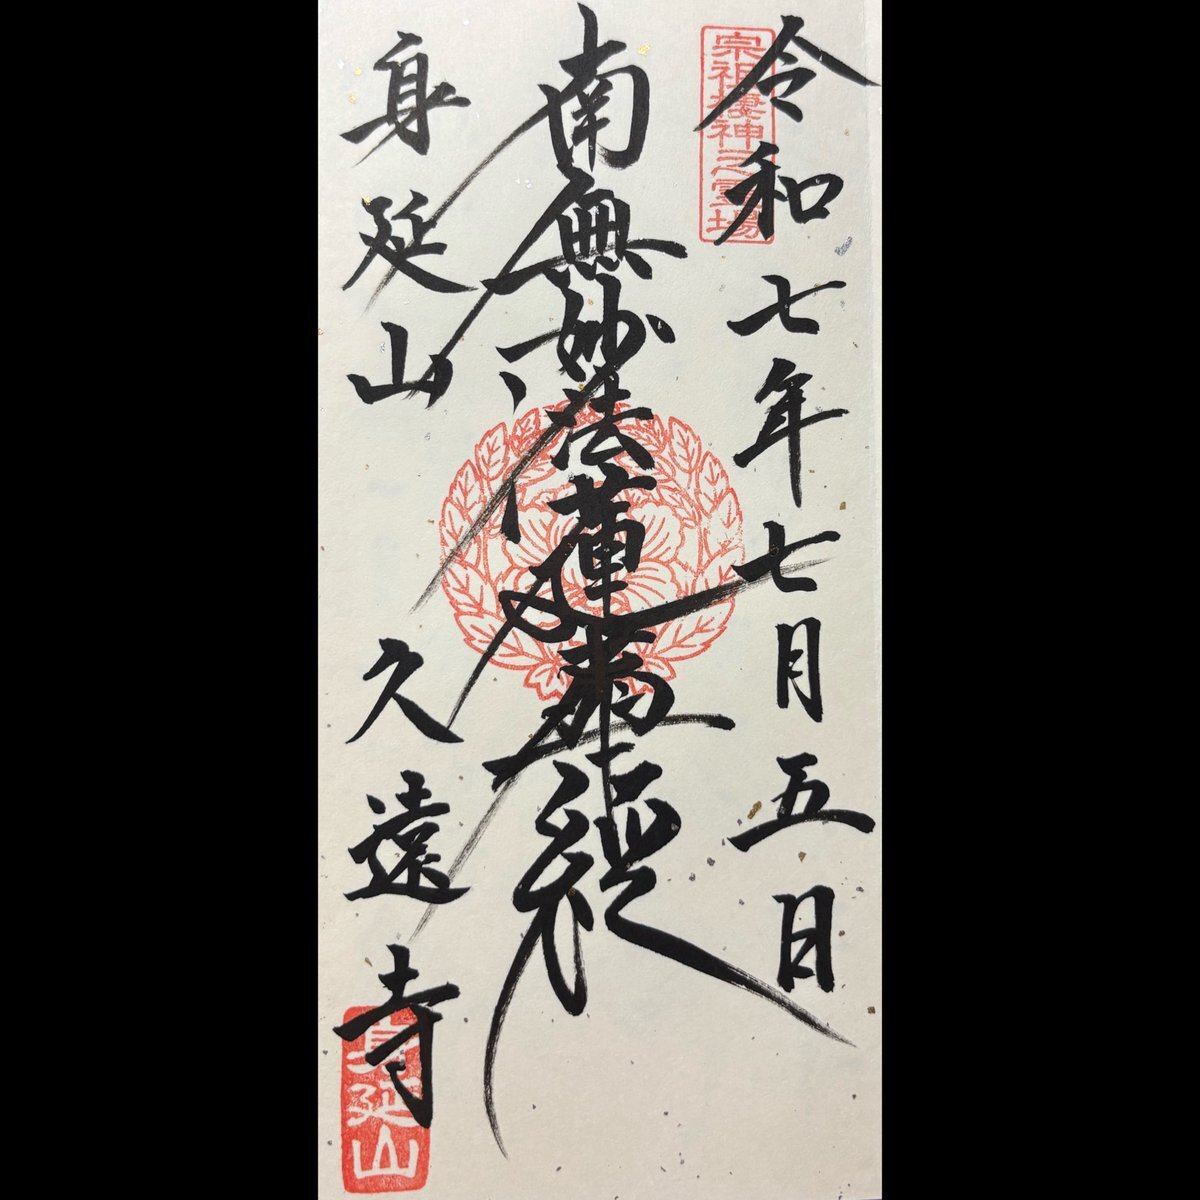 宗祖棲神之霊場
令和七年七月五日
南無妙法蓮華経
身延山
久遠寺
身延山